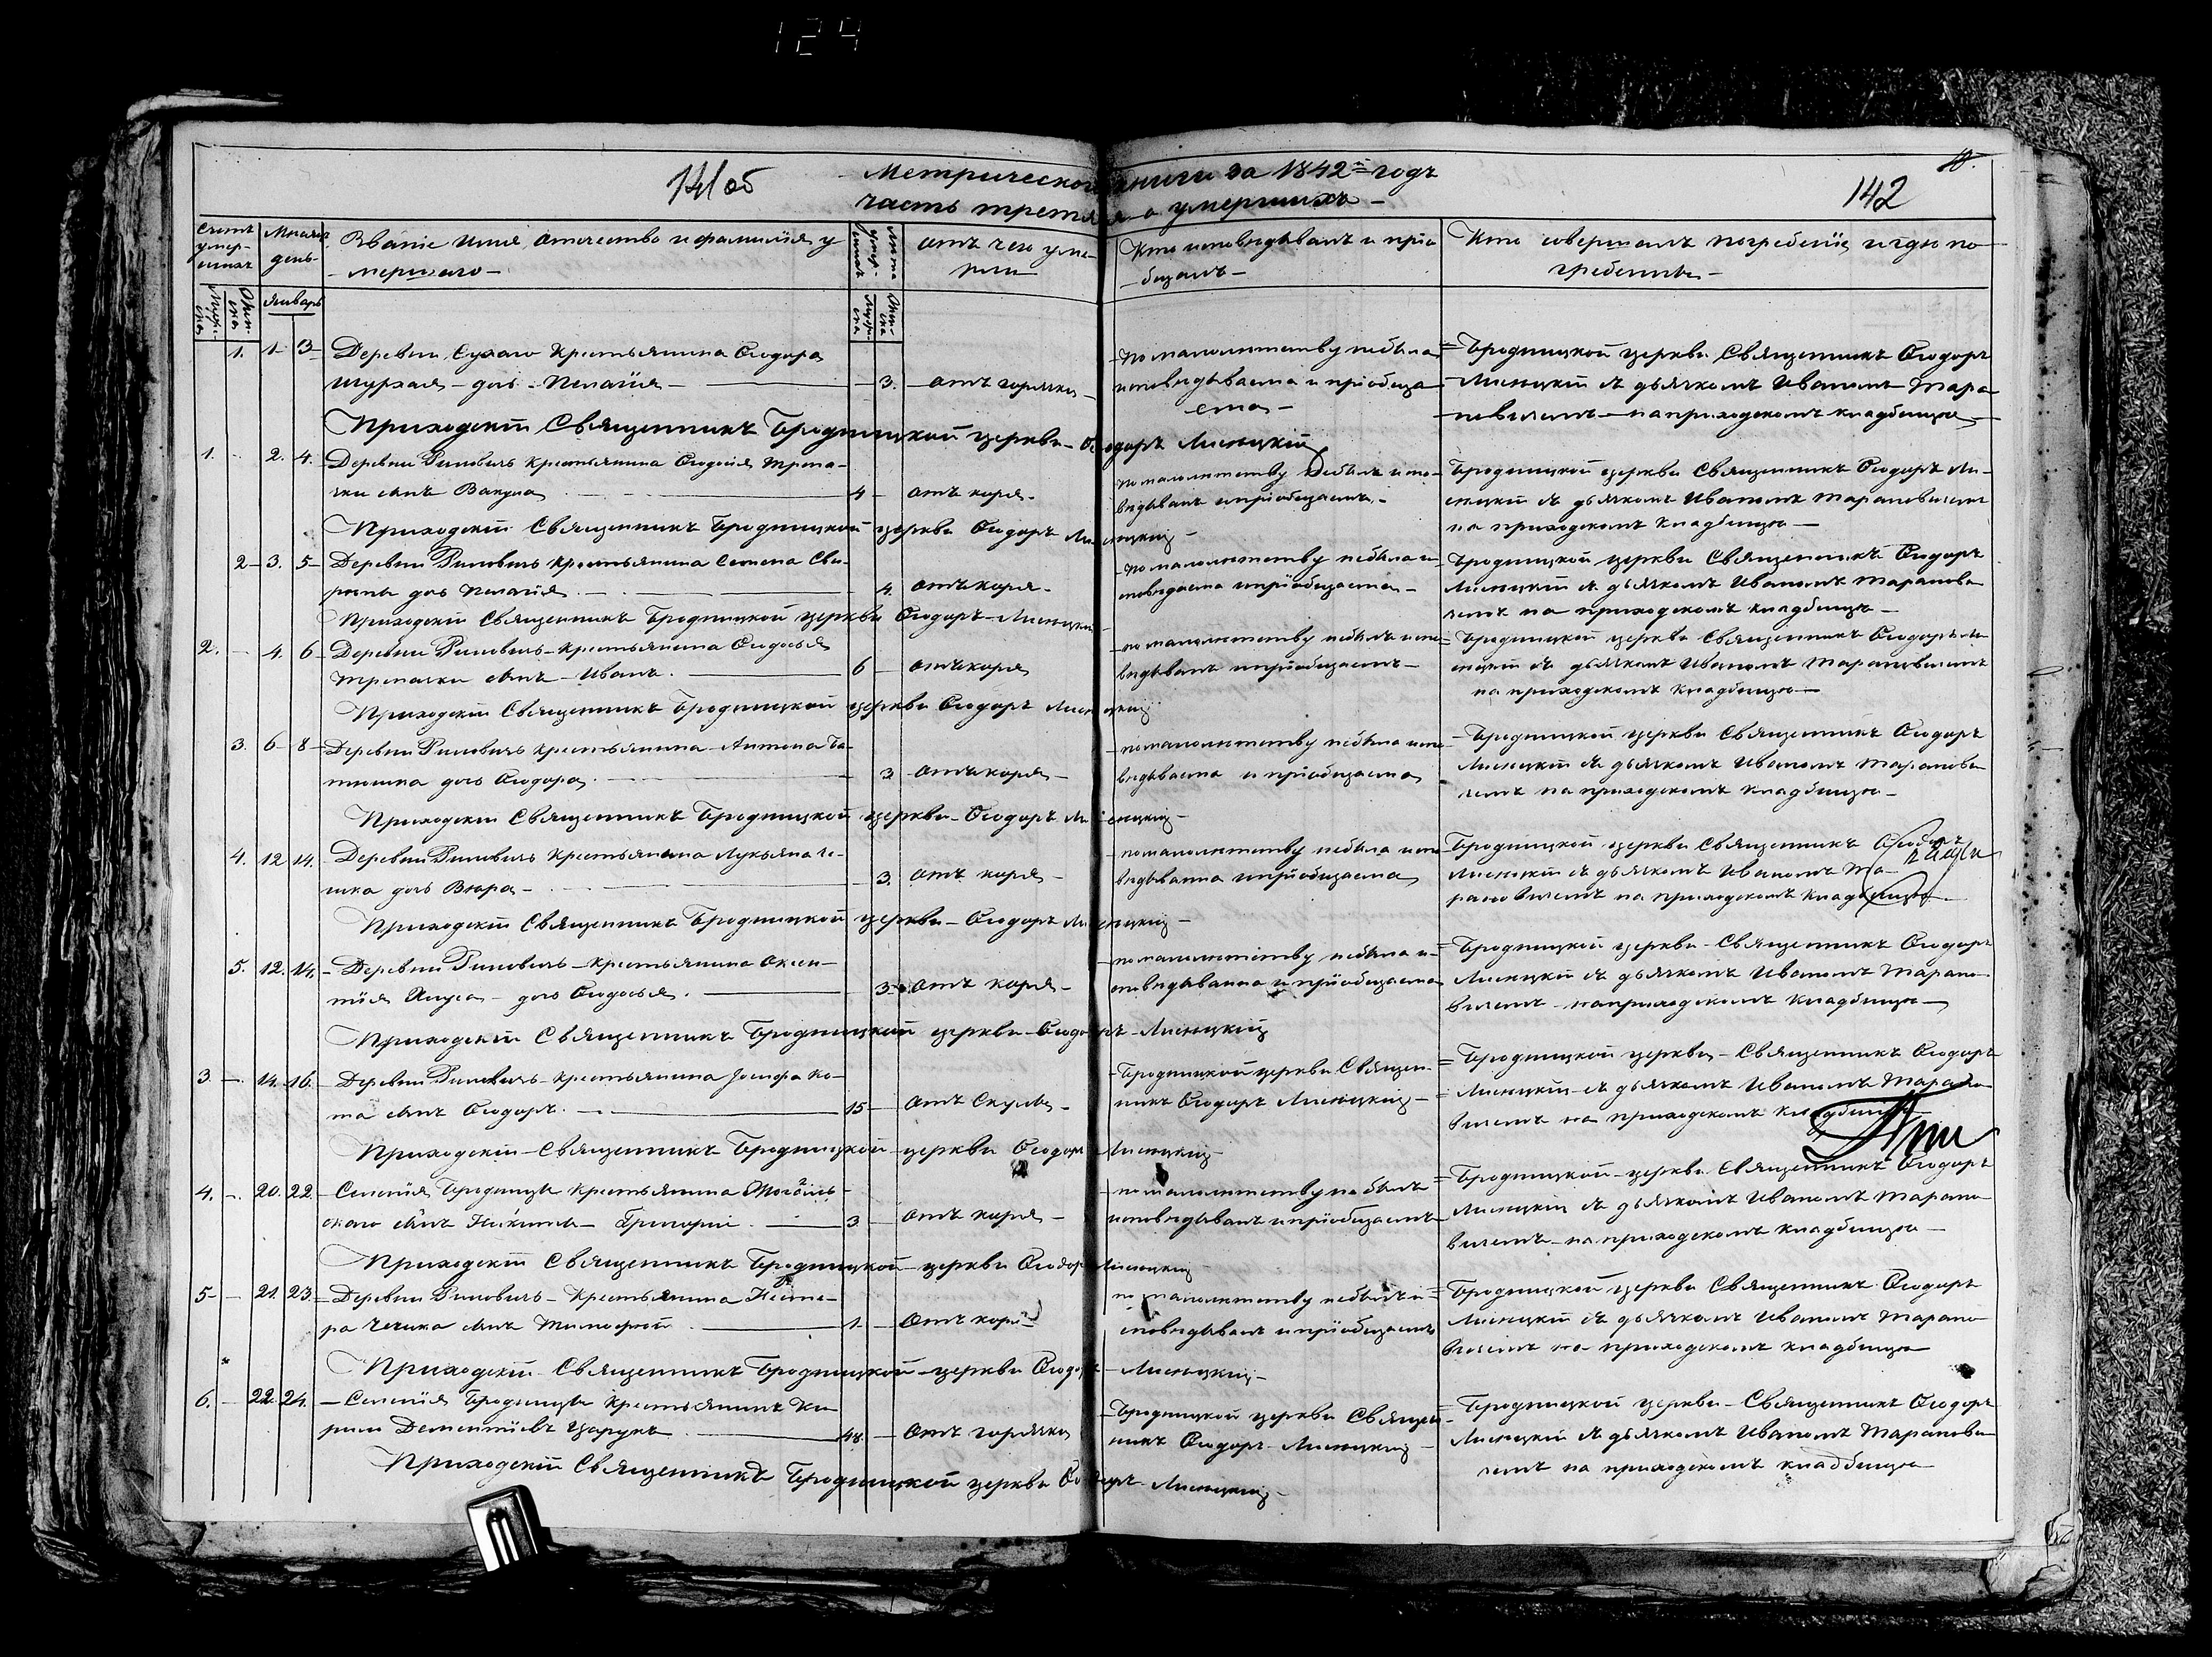 124
141 об
Метрической книги за 1842й годъ
часть третья о умершихъ
142
Счетъ умер-шихъ
Мѣсяцъ день
Званіе имя, отчество и фамилія у
мершаго
Лѣта умер-шихъ
отъ чего уме-
рли
Кто исповѣдывалъ и прiо
бщалъ
Кто совершалъ погребенiе и гдѣ по
гребены
Муж-ска
Жен-ска
Январь
Муж-ска
Жен-ска
1. 1 3 Деревни Сухаго крестьянина Ѳеодора
3. отъ горячки
дочь Пелагія
по малолетству небыла
исповѣдываема и прiобща
ема
Бродницкой церкви Священникъ Ѳеодоръ
Лисецкій съ дьячкомъ Иваномъ Тара
новичемъ на приходскомъ кладбищѣ
Приходскій Священникъ Бродницкой церкви Ѳеодоръ Лисецкій
1. 2. 4. Деревни Риповичъ крестьянина Ѳеодосія Трепа-
чки сынъ Вакула 4 отъ коря
по малолетству небылъ испо-
вѣдыванъ и прiобщаемъ
Бродницкой церкви Священникъ Ѳеодоръ Ли-
сецкій съ дьячкомъ Иваномъ Тарановичемъ
на приходскомъ кладбищѣ
Приходскій Священникъ Бродницкой церкви Ѳеодоръ Лисецкій
2 3. 5 Деревни Риповичъ крестьянина Семена Сви-
рипы дочь Пелагія 4. отъ коря
по малолетству небыла и
сповѣдаема и прiобщаема
Бродницкой церкви Священникъ Ѳеодоръ
Лисецкій съ дьячкомъ Иваномъ Таранови
чемъ на приходскомъ кладбищѣ
Приходскій Священникъ Бродницкой церкви Ѳеодоръ Лисецкій
2. 4. 6 Деревни Риповичъ крестьянина Ѳеодосья
Трепачки сынъ Иванъ 6 отъ коря
по малолетству небылъ испо
вѣдыванъ и прiобщаемъ
Бродницкой церкви Священникъ Ѳеодоръ Ли
сецкій съ дьячкомъ Иваномъ Тарановичемъ
на приходскомъ кладбищѣ
Приходскій Священникъ Бродницкой церкви Ѳеодоръ Лисецкій
3. 6 8 Деревни Риповичъ крестьянина Антона
дочь Ѳеодора 3 отъ коря
по малолетству небыла испо
вѣдываема и прiобщаема
Бродницкой церкви Священникъ Ѳеодоръ
Лисецкій съ дьячкомъ Иваномъ Таранови
чемъ на приходскомъ кладбищѣ
Приходскій Священникъ Бродницкой церкви Ѳеодоръ Лисецкій
4. 12 14. Деревни Риповичъ крестьянина Лукьяна Че-
чика дочь Вѣра 3. отъ коря
по малолетству небыла испо
вѣдывана и прiобщаема
Бродницкой церкви Священникъ Ѳеодоръ
Лисецкій съ дьячкомъ Иваномъ Та-
рановичемъ на приходскомъ кладбищѣ
Приходскій Священникъ Бродницкой церкви Ѳеодоръ Лисецкій
5. 12. 14. Деревни Риповичъ крестьянина Оксен-
тія дочь Ѳеодосья 3 отъ коря
по малолетству небыла и
сповѣдывана и прiобщаема
Бродницкой церкви Священникъ Ѳеодоръ
Лисецкій съ дьячкомъ Иваномъ Тарано
вичемъ на приходскомъ кладбищѣ
Приходскій Священникъ Бродницкой церкви Ѳеодоръ Лисецкій
3. 14. 16. Деревни Риповичъ крестьянина Іосифа Ко-
та сынъ Ѳеодоръ 15 отъ Скулы
Бродницкой церкви Священ-
никъ Ѳеодоръ Лисецкій
Бродницкой церкви Священникъ Ѳеодоръ
Лисецкій съ дьячкомъ Иваномъ Тарано
вичемъ на приходскомъ кладбищѣ
Приходскій Священникъ Бродницкой церкви Ѳеодоръ Лисецкій
4. 20. 22. Селенія Бродницы крестьянина
сынъ Никиты Григорій 3 отъ коря
по малолетству небылъ
исповѣдыванъ и прiобщаемъ
Бродницкой церкви Священникъ Ѳеодоръ
Лисецкій съ дьячкомъ Иваномъ Тарано
вичемъ на приходскомъ кладбищѣ
Приходскій Священникъ Бродницкой церкви Ѳеодоръ Лисецкій
5 21. 23. Деревни Риповичъ крестьянина Несте-
ра Чечика сынъ Тимофей 1. отъ коря
по малолетству небылъ и
сповѣдыванъ и прiобщаемъ
Бродницкой церкви Священникъ Ѳеодоръ
Лисецкій съ дьячкомъ Иваномъ Тарано
вичемъ на приходскомъ кладбищѣ
Приходскій Священникъ Бродницкой церкви Ѳеодоръ Лисецкій
6. 22 24. Селенія Бродницы крестьянинъ Ки-
рило Дементіевъ Царукъ 48. отъ горячки
Бродницкой церкви Священ
никъ Ѳеодоръ Лисецкій
Бродницкой церкви Священникъ Ѳеодоръ
Лисецкій съ дьячкомъ Иваномъ Таранови
чемъ на приходскомъ кладбищѣ
Приходскій Священникъ Бродницкой церкви Ѳеодоръ Лисецкій